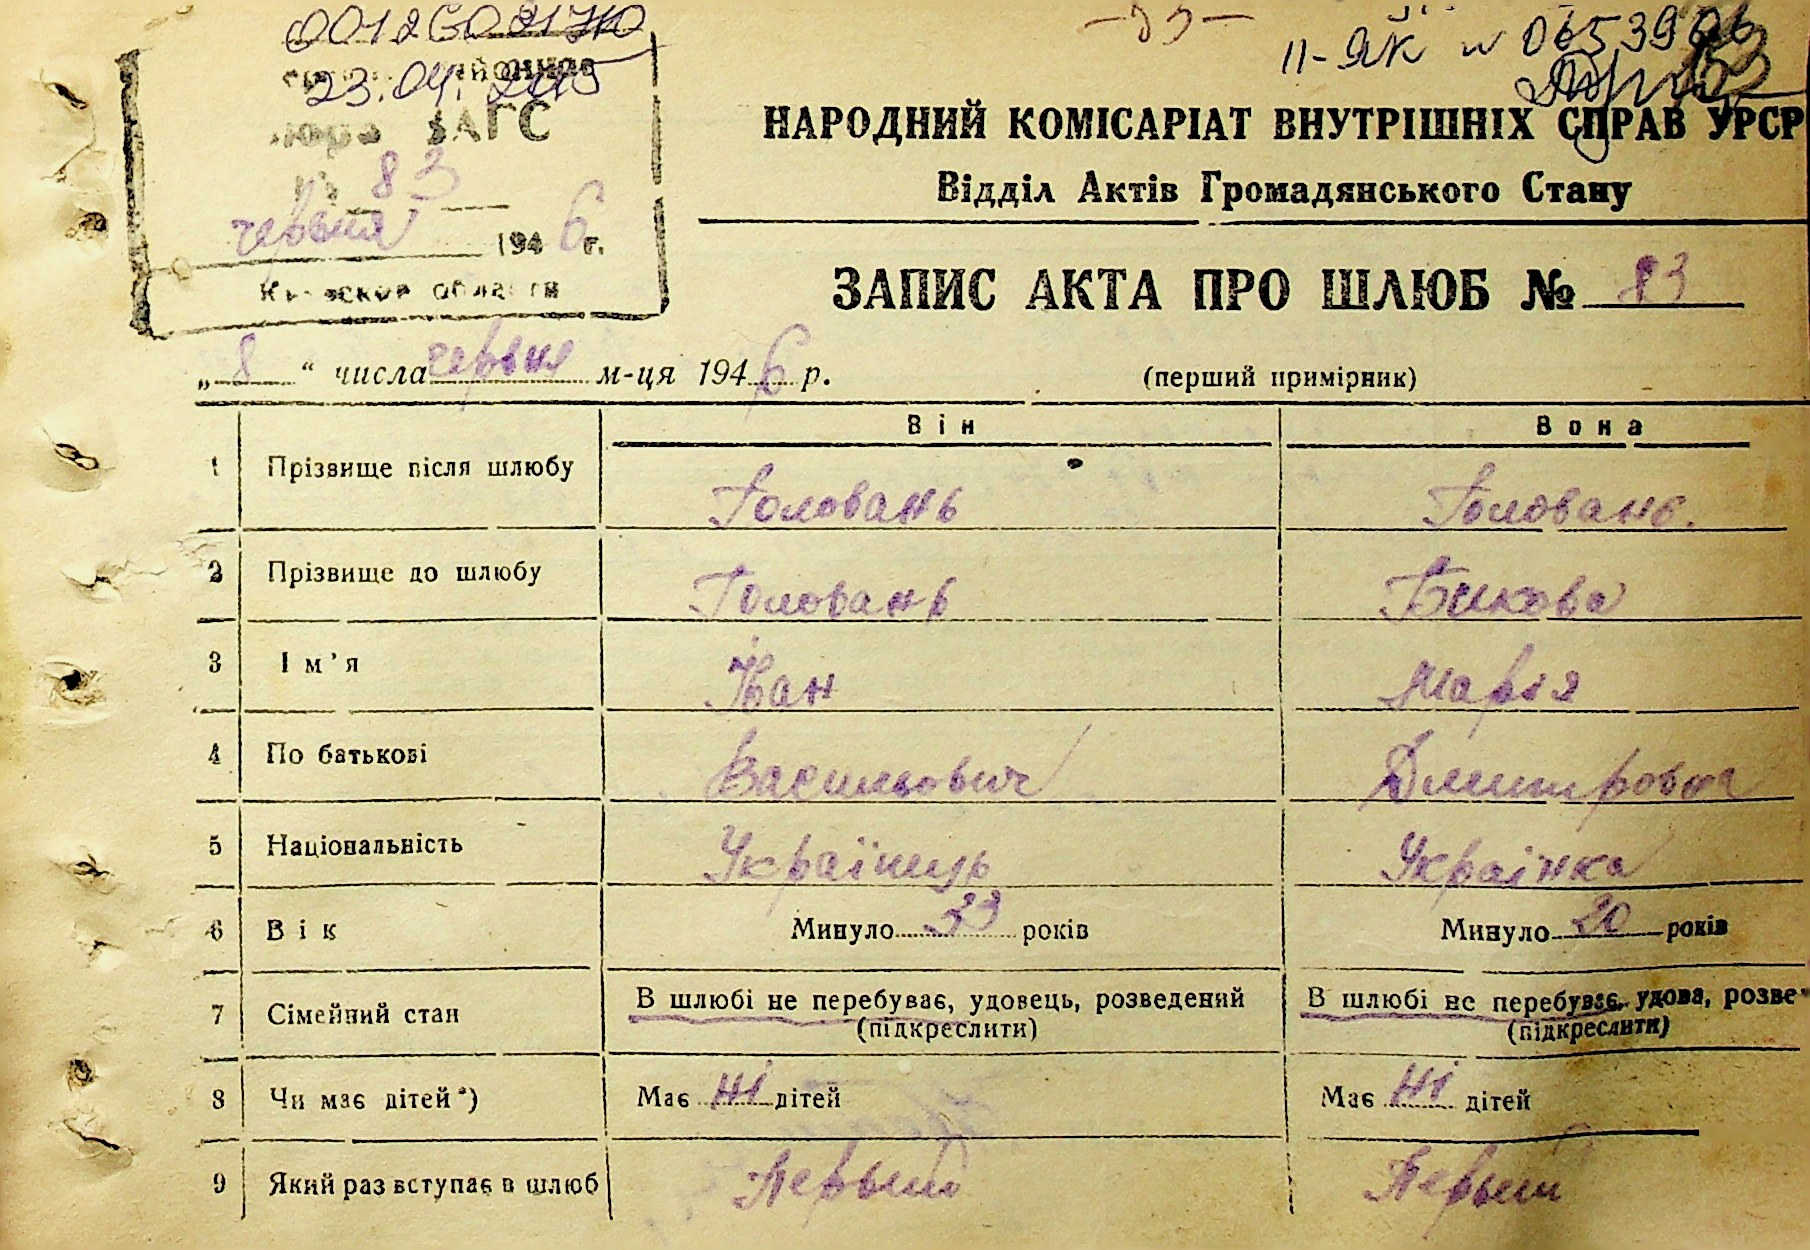 00126021710
23.04.2015
ЗАГС
83
червня 1946 г.
Киевской области
-83-
II-ЯК № 0653906
НАРОДНИЙ КОМІСАРІАТ ВНУТРІШНІХ СПРАВ УРСР
Відділ Актів Громадянського Стану
ЗАПИС АКТА ПРО ШЛЮБ № 83
„8“ числа червня м-ця 1946 р.
(перший примірник)
Він Вона
1 Прізвище після шлюбу Головань Головань.
2 Прізвище до шлюбу Головань Бикова
3 Ім’я Іван Марія
4 По батькові Васильович Дмитровна
5 Національність Українць Українка
6 Вік Минуло 33 років Минуло 20 років
7 Сімейний стан В шлюбі не перебуває, удовець, розведений В шлюбі не перебуває, удова, розве
(підкреслити) (підкреслити)
8 Чи має дітей*) Має ні дітей Має ні дітей
9 Який раз вступає в шлюб Первый Первый